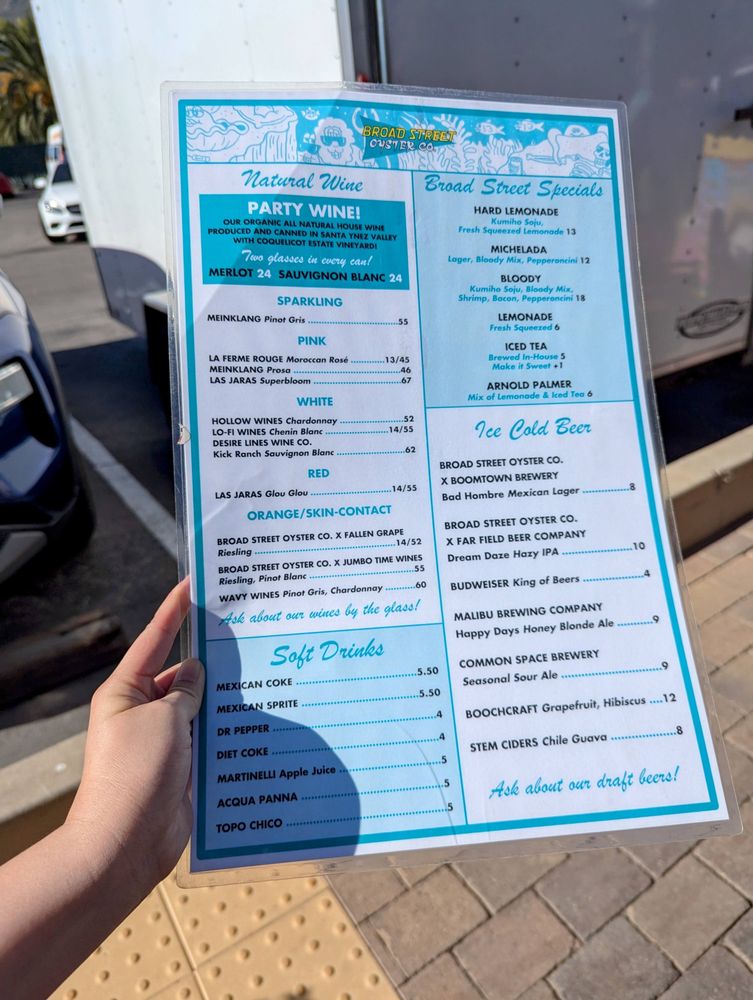 BROAD STREET
OYSTER CO.
Natural Wine
PARTY WINE!
OUR ORGANIC ALL NATURAL HOUSE WINE
PRODUCED AND CANNED IN SANTA YNEZ VALLEY
WITH COQUELICOT ESTATE VINEYARD!
Two glasses in every can!
MERLOT 24 SAUVIGNON BLANC 24
SPARKLING
MEINKLANG Pinot Gris ........ 55
PINK
LA FERME ROUGE Moroccan Rosé ........ 13/45
MEINKLANG Prosa ........ 46
LAS JARAS Superbloom ........ 67
WHITE
HOLLOW WINES Chardonnay ........ 52
LO-FI WINES Chenin Blanc ........ 14/55
DESIRE LINES WINE CO.
Kick Ranch Sauvignon Blanc ........ 62
RED
LAS JARAS Glou Glou ........ 14/55
ORANGE/SKIN-CONTACT
BROAD STREET OYSTER CO. X FALLEN GRAPE
Riesling ........ 14/52
BROAD STREET OYSTER CO. X JUMBO TIME WINES
Riesling, Pinot Blanc ........ 55
WAVY WINES Pinot Gris, Chardonnay ........ 60
Ask about our wines by the glass!
Soft Drinks
MEXICAN COKE ........ 5.50
MEXICAN SPRITE ........ 5.50
DR PEPPER ........ 4
DIET COKE ........ 4
MARTINELLI Apple Juice ........ 5
ACQUA PANNA ........ 5
TOPO CHICO ........ 5
Broad Street Specials
HARD LEMONADE
Kumiho Soju,
Fresh Squeezed Lemonade 13
MICHELADA
Lager, Bloody Mix, Pepperoncini 12
BLOODY
Kumiho Soju, Bloody Mix,
Shrimp, Bacon, Pepperoncini 18
LEMONADE
Fresh Squeezed 6
ICED TEA
Brewed In-House 5
Make it Sweet +1
ARNOLD PALMER
Mix of Lemonade & Iced Tea 6
Ice Cold Beer
BROAD STREET OYSTER CO.
X BOOMTOWN BREWERY
Bad Hombre Mexican Lager ........ 8
BROAD STREET OYSTER CO.
X FAR FIELD BEER COMPANY
Dream Daze Hazy IPA ........ 10
BUDWEISER King of Beers ........ 4
MALIBU BREWING COMPANY
Happy Days Honey Blonde Ale ........ 9
COMMON SPACE BREWERY
Seasonal Sour Ale ........ 9
BOOCHCRAFT Grapefruit, Hibiscus .... 12
STEM CIDERS Chile Guava ........ 8
Ask about our draft beers!